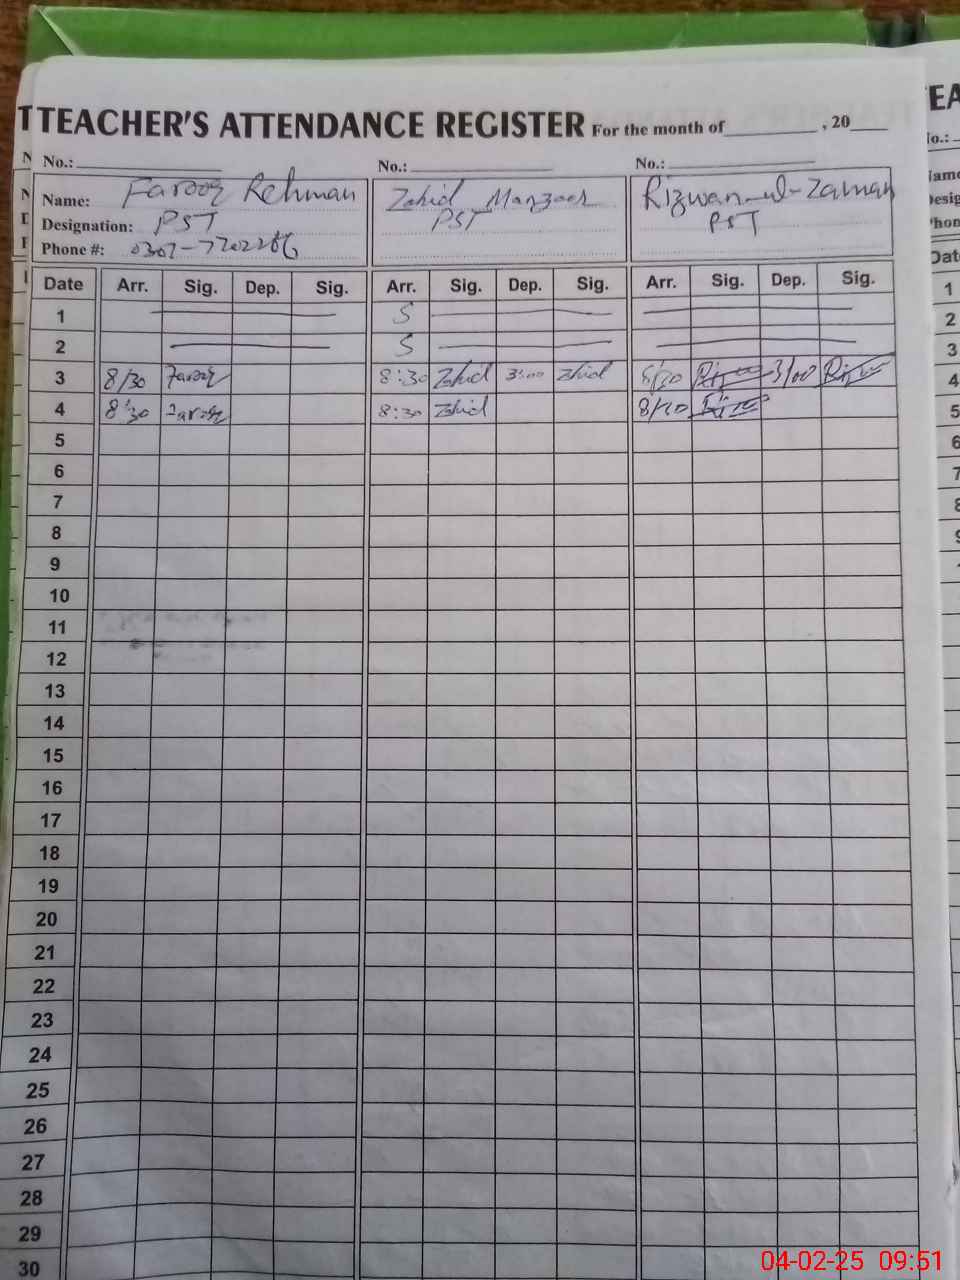 TEACHER'S ATTENDANCE REGISTER For the month of , 20
No.: No.: No.:
Name: Farooq Rehman Zahid Manzoor Rizwan-ul-Zaman
Designation: PST PST PST
Phone #:
Date Arr. Sig. Dep. Sig. Arr. Sig. Dep. Sig. Arr. Sig. Dep. Sig.
1 S
2 S
3 8/30 Farooq 8:30 Zahid 3:00 Zahid 3/00
4 8:30 Farooq 8:30 Zahid
5
6
7
8
9
10
11
12
13
14
15
16
17
18
19
20
21
22
23
24
25
26
27
28
29
30
04-02-25 09:51